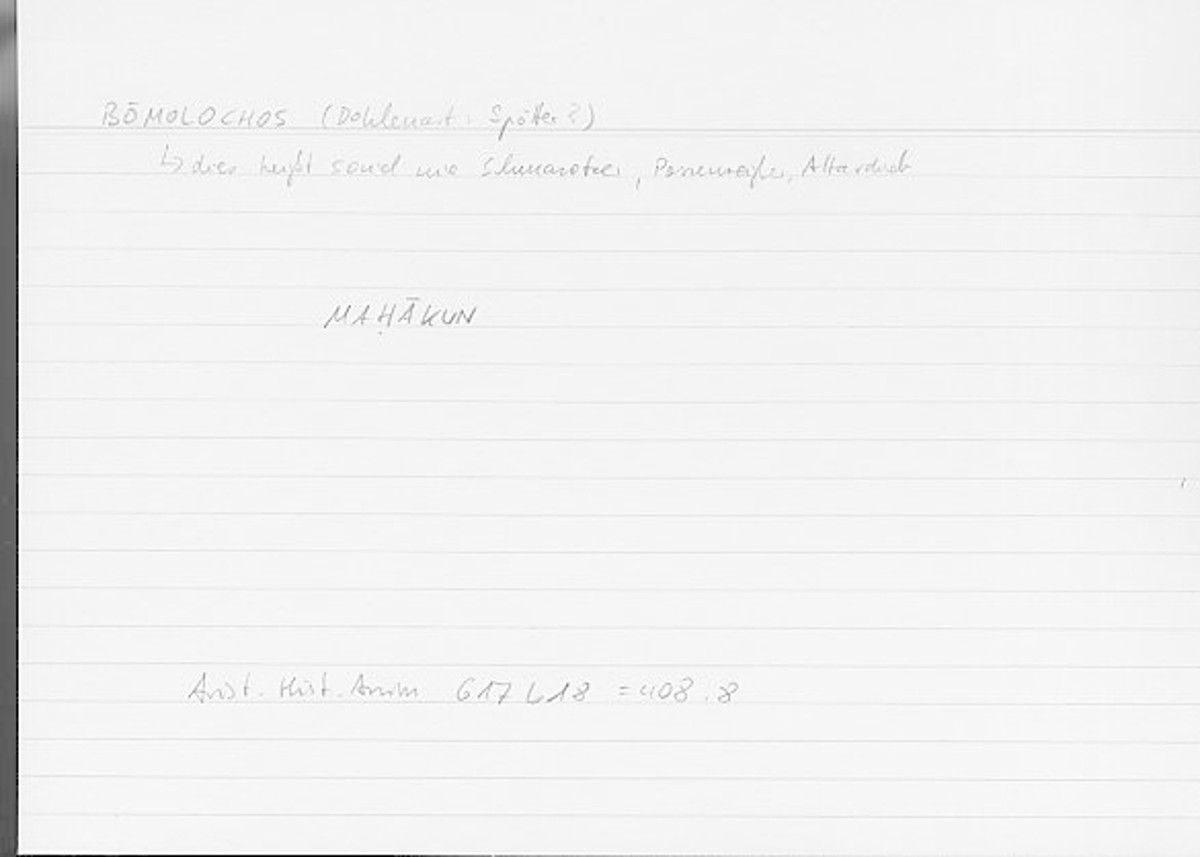 BŌMOLOCHOS (Dohlenart: Spötter?)
↳ dies heißt soviel wie Schmarotzer, Possenreißer, Altardieb
MAḤĀKUN
Arist. Hist. Anim 617 b 18 = 408.8